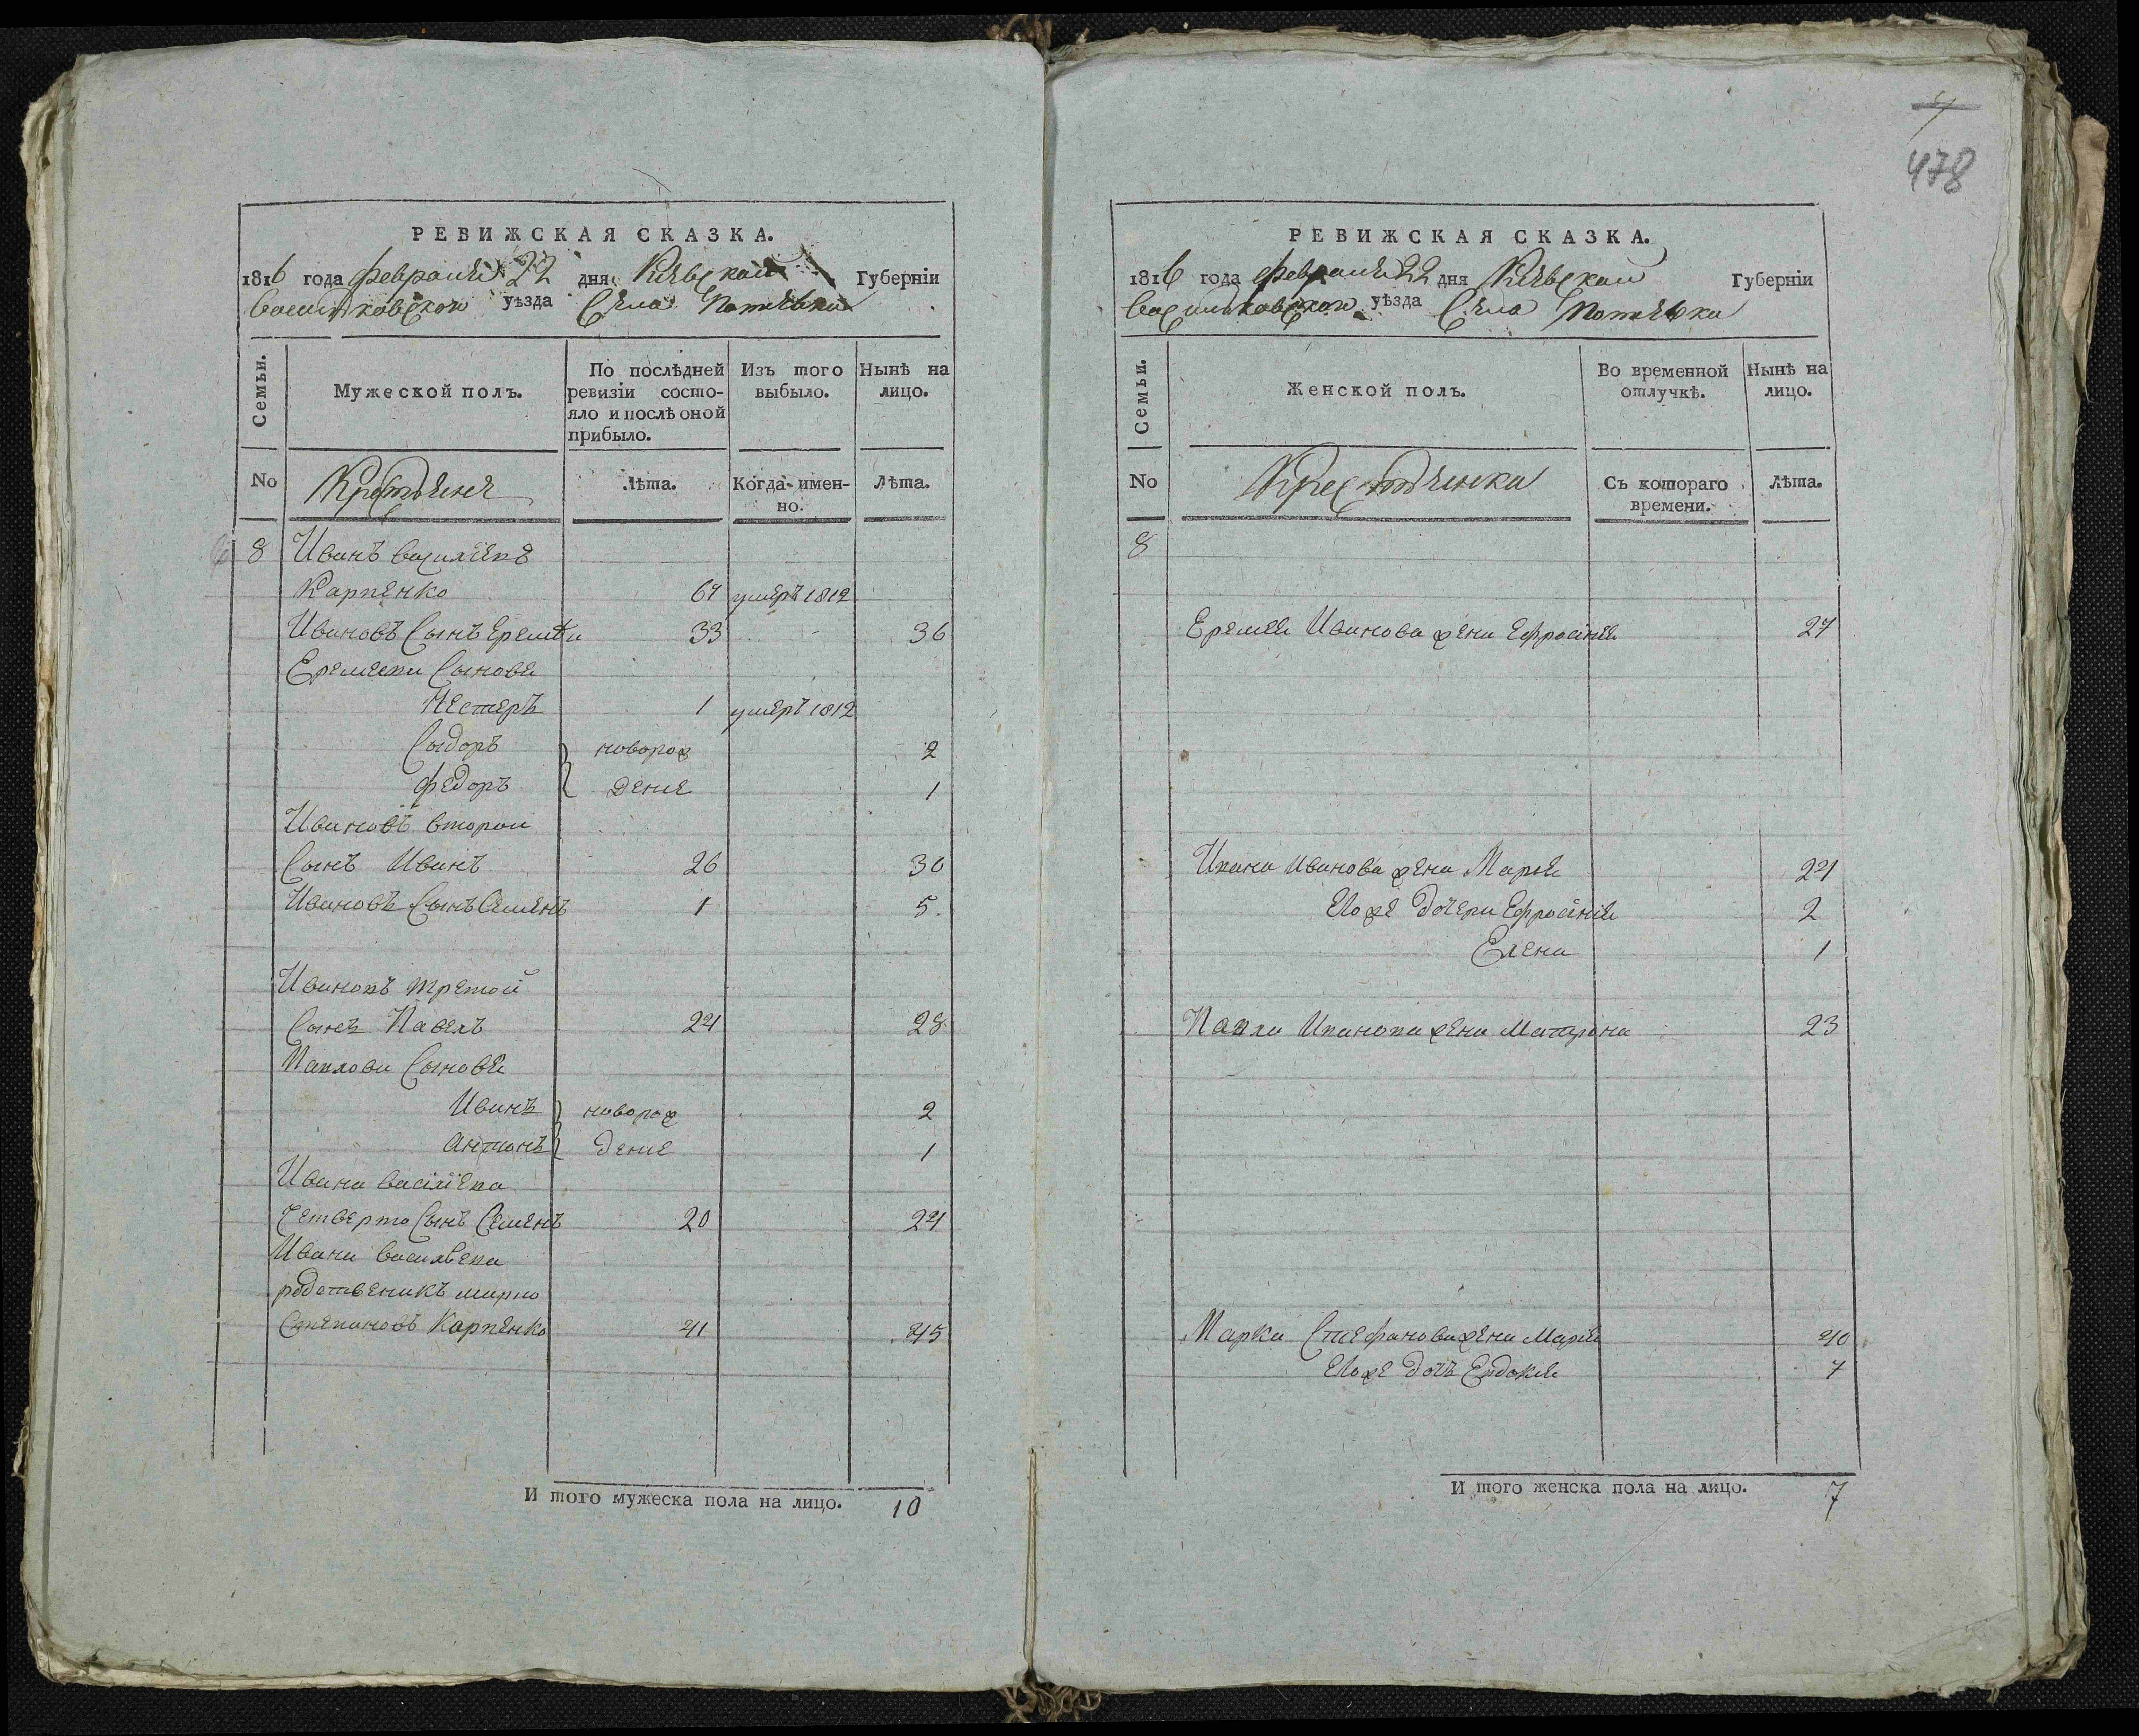 РЕВИЖСКАЯ СКАЗКА.
1816 года февраля 22 дня Киевской Губерніи
Васильковского уѣзда Села Потіевки
Семьи.
Мужеской полъ.
По послѣдней ревизіи состояло и послѣ оной прибыло.
Изъ того выбыло.
Нынѣ на лицо.
No
Крестьяне
Лѣта.
Когда именно.
Лѣта.
8 Иванъ василіевъ
Карпенко 67 умеръ 1812
Ивановъ Сынъ Еремѣи 33 36
Еремеевы Сынове
Нестеръ 1 умеръ 1812
Сыдоръ новорож 2
Федоръ дение 1
Ивановъ второи
Сынъ Иванъ 26 30
Ивановъ Сынъ Семенъ 1 5.
Ивановъ третой
Сынъ Павелъ 24 28
Павлови Сынове
Иванъ новорож 2
антонъ дение 1
Ивана василіева
Четверто Сынъ Семенъ 20 24
Ивана васильева
родственикъ марко
Степановъ Карпенко 41 45
И того мужеска пола на лицо. 10
478
РЕВИЖСКАЯ СКАЗКА.
1816 года февраля 22 дня Киевской Губерніи
Васильковского уѣзда Села Потіевки
Семьи.
Женской полъ.
Во временной отлучкѣ.
Нынѣ на лицо.
No
Крестьянки
Съ котораго времени.
Лѣта.
8
Еремея Иванова жена Ефросинія 27
Ивана Иванова жена Марья 24
Егоже дочери Ефросинія 2
Елена 1
Павла Иванова жена Матрона 23
Марка Стефанова жена Марія 40
Егоже дочь Евдокия 7
И того женска пола на лицо. 7